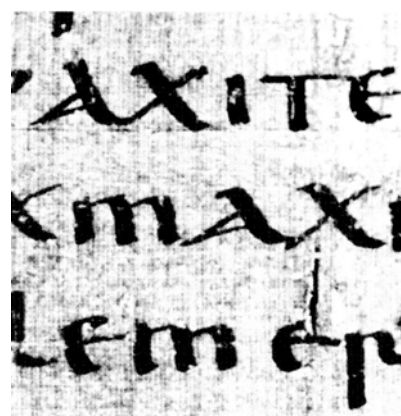 AXITE
XmAXI
Lemep